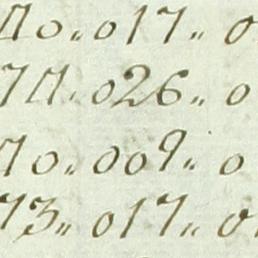 40„ 017„ 0
74„ 026„ 0
40„ 009„ 0
73„ 017„ 0